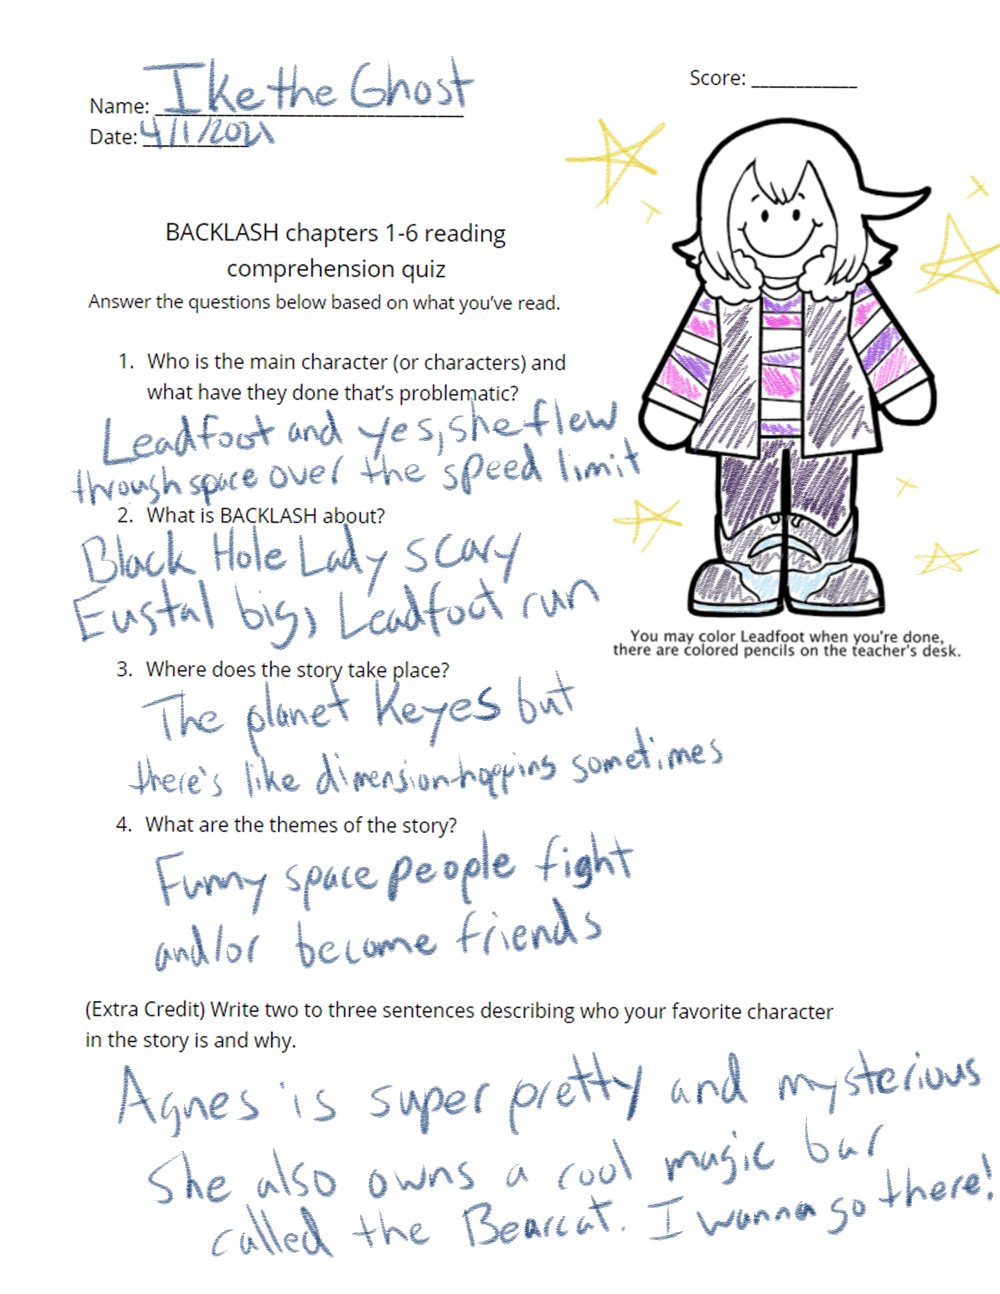 Name: Ike the Ghost
Score:
Date: 4/1/2021
BACKLASH chapters 1-6 reading
comprehension quiz
Answer the questions below based on what you've read.
1. Who is the main character (or characters) and
what have they done that's problematic?
Leadfoot and yes, she flew
through space over the speed limit
2. What is BACKLASH about?
Black Hole Lady scary
Eustal big, Leadfoot run
You may color Leadfoot when you're done,
there are colored pencils on the teacher's desk.
3. Where does the story take place?
The planet Keyes but
there's like dimension-hopping sometimes
4. What are the themes of the story?
Funny space people fight
and/or become friends
(Extra Credit) Write two to three sentences describing who your favorite character
in the story is and why.
Agnes is super pretty and mysterious
She also owns a cool magic bar
called the Bearcat. I wanna go there!